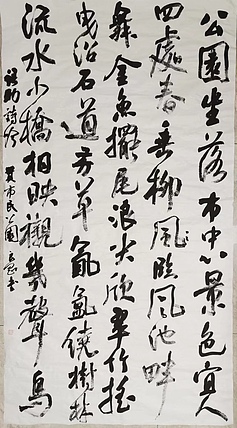 公園坐落市中心景色宜人
四處春垂柳風臨風池畔
舞金魚擺尾浪尖欣翠竹搖
曳沿石道芳草氤氳繞樹林
流水小橋相映襯幾聲鳥
語助詩吟
市民公園